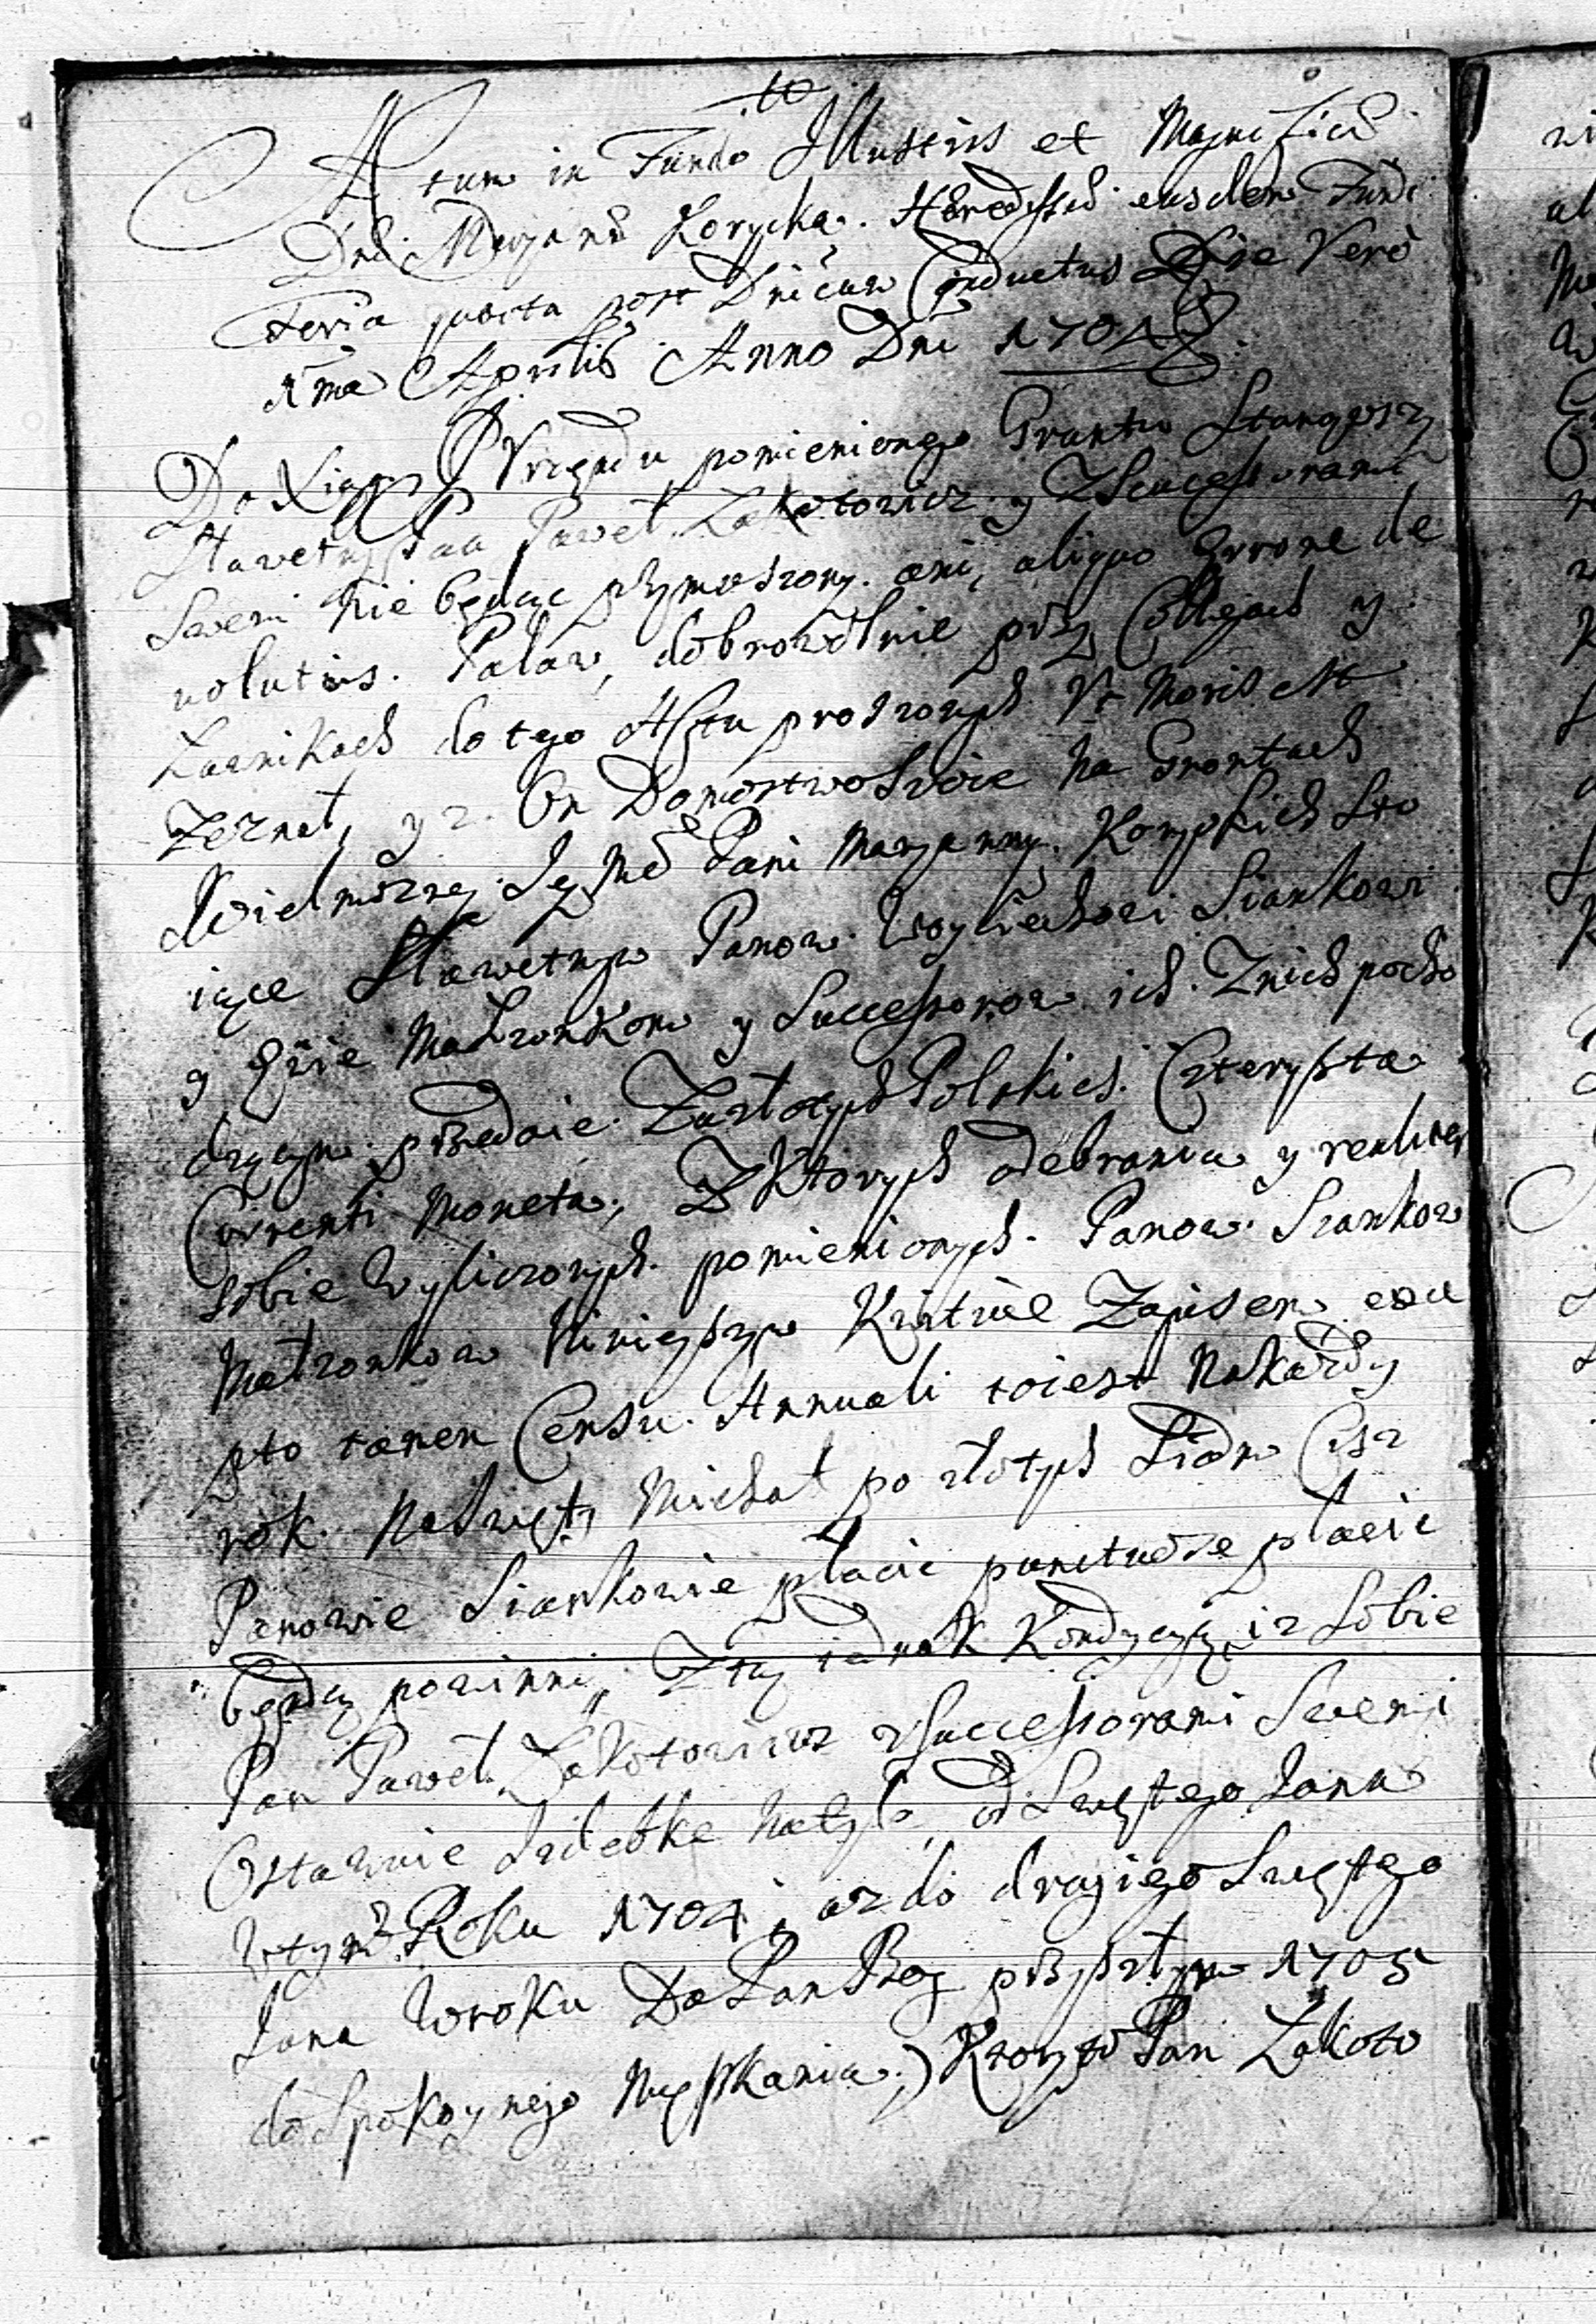 10
Actum in Fundo Illustris et Magnificae
Dnae Maryanae Korycka. Haeredissae eiusdem Fundi
Feria quarta post Dnicam Conductus Die Vero
Aprilis Anno Dni 1704
Do Xiąg Vrzędu pomienionego Gruntu Stanąwszy
Sławetny Pan Paweł Zakotowicz y ZSuccessorami
Swemi Nie będąc przymuszony. ani, aliquo Errore de
uolutus. Palam, dobrowolnie przy Collegach y
Ławnikach do tego Actu proszonych Vt Moris est
Zeznał, yz. On Domostwo Swoie Na Grontach
Wielmozney Jey Mc Pani Maryanny. Koryckich Sto
iące Sławetnym Panom Woyciechowi Siankowi
y Ewie Małzonkom y Successorom ich. Znich pocho
dzącym przedaie. Zazłotych Polskich. Czterysta
Currenti Moneta, Z Ktorych odebrania y realiter
Sobie Wyliczonych. pomienionych. Panow. Siankow
Małzonkow Ninieyszym Kwituie Zapisem,
pto tamen Censu. Annuali toiest Nakazdy
rok. NaSwęty Michał po złotych Siedm Cisz
Panowie Siankowie płacic punctuose płacic
będą powinni, Z tą iednak Kondycyą, iz Sobie
Pan Paweł Zakotowicz zSuccessorami Swemi
Ostawuie Izdebke Natyle, od Swętego Jana
Wtymze Roku 1704, az do drugiego Swętego
Jana Wroku Da Pan Bog przyszłym 1705
do Spokoynego Męszkania.) Ktory to Pan Zakoto